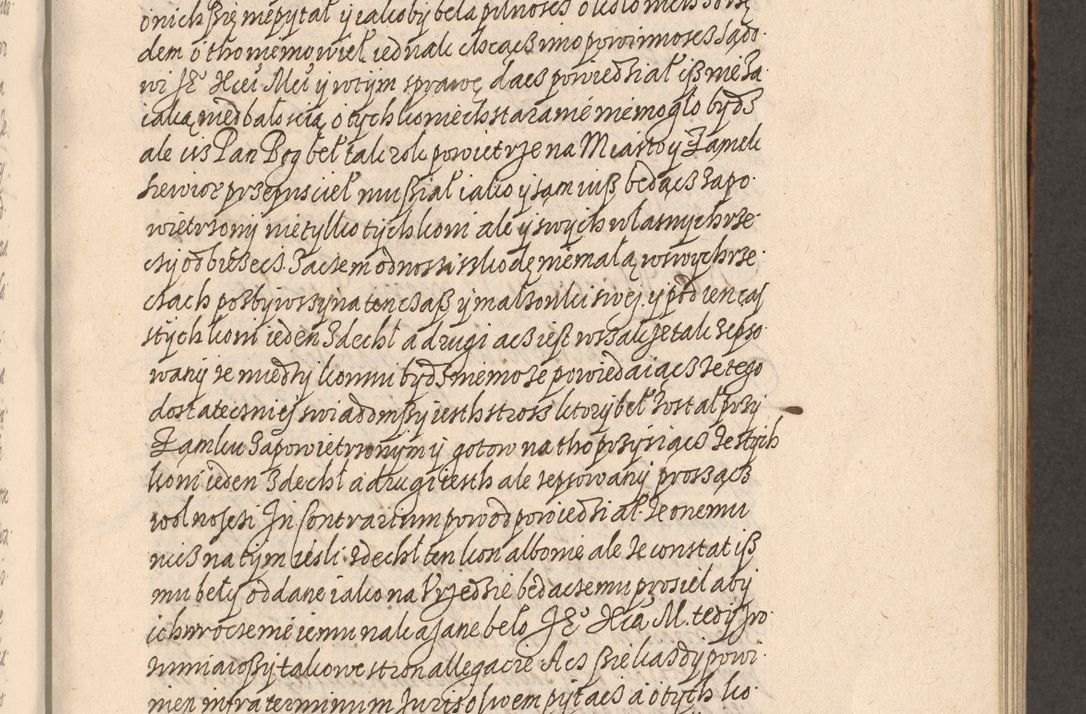 onich się niepytał y iakoby beła pilnosci około nich so się
dem o tho niemowieł iednak chcącz imo powinnoscz Sądo
wi JE° Xcéi Mci y wtym sprawę dacz powiedział isz nieza
iaką niedbałoscią otych koniech staranie niemogło bydz
ale iisz Pan Bog beł tak rok powietrze na Miasto y Zamek
Siewior przepusciel musział iako y sąm iusz bedącz zapo
wietrzony nietylko tych koni ale y swych własnych rze
czy odbieżecz Zaczem odnosi szkodę niemałą w swych rze
czach pozbywszy na ten czasz y małżonki swej y pod ien czas
stych koni ieden zdechł a drugi acz iest wszakze tak zepso
wany ze miedzy konmi bydz niemoże powiedaiącz że tego
dostateczniej swiadomszy iesth strosz ktory beł został przy
Zamku zapowietrzonym y gotow na tho przysiącz że stych
koni ieden zdechł a drugi iesth ale zepsowany proszącz
wolnosczi In Contrarium powod powiedział że onemu
nicz na tym iesli zdechł ten kon albo nie ale że constat isz
mu beły oddane iako na Urzędzie bedaczemu prosiel aby
ich wroczenie iemu nakazane beło JE° Xcia M. tedy zro
zumiawszy takowe stron allegacie Acz sie każdy powi
nien infra terminum Juris osłwem pytacz a otych ko